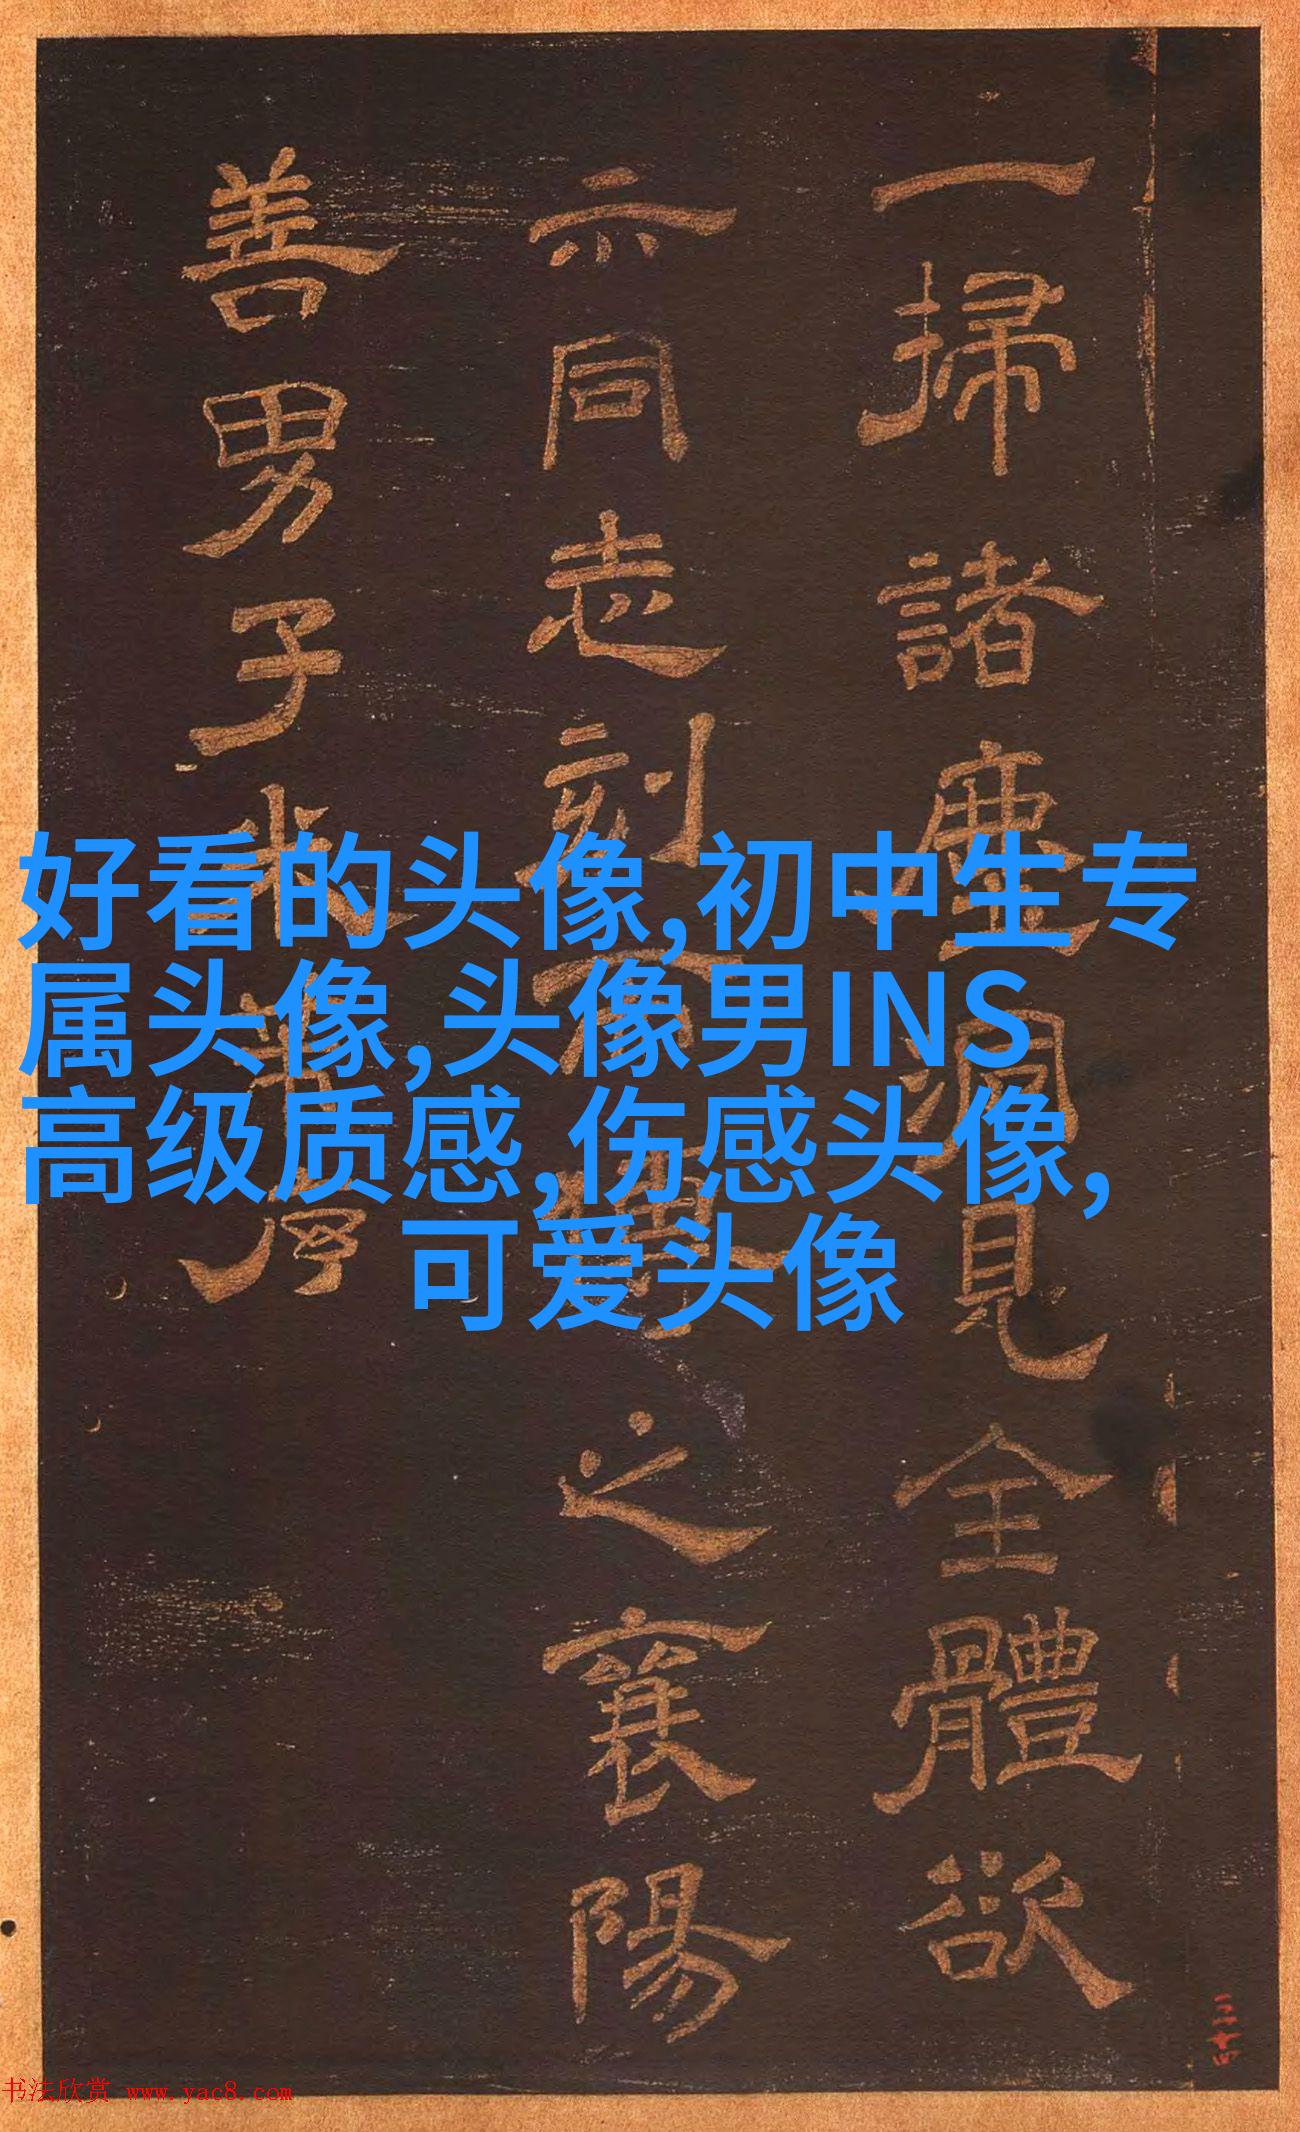 一掃諸塵洞見全體欲
示同志刻之襄陽
善男子米
好看的头像,初中生专
属头像,头像男INS
高级质感,伤感头像,
可爱头像
书法欣赏 www.yac8.com